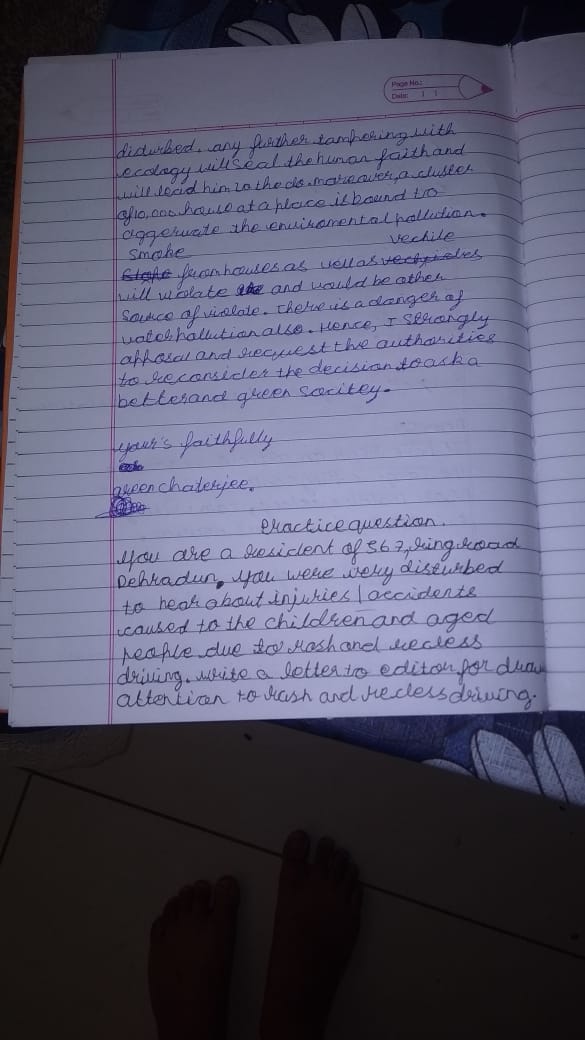 Page No.:
Date:
disturbed. any further tampering with
ecology will seal the human faith and
will lead him to the do. moreover, a cluster
of 10,000 house at a place is bound to
aggerwate the enviromental pollution.
smoke vechile
from houses as well as
will violate and would be other
source of violate. There is a danger of
water pollution also. Hence, I Strongly
apposal and request the authorities
to reconsider the decision to ask a
better and green socitey.
your's faithfully
chaterjee.
Practice question.
You are a resident of 567, ring road
Dehradun. You were very disturbed
to hear about injuries / accidents
caused to the children and aged
people due to rash and recless
driving. write a letter to editor for draw
attention to rash and recless driving.